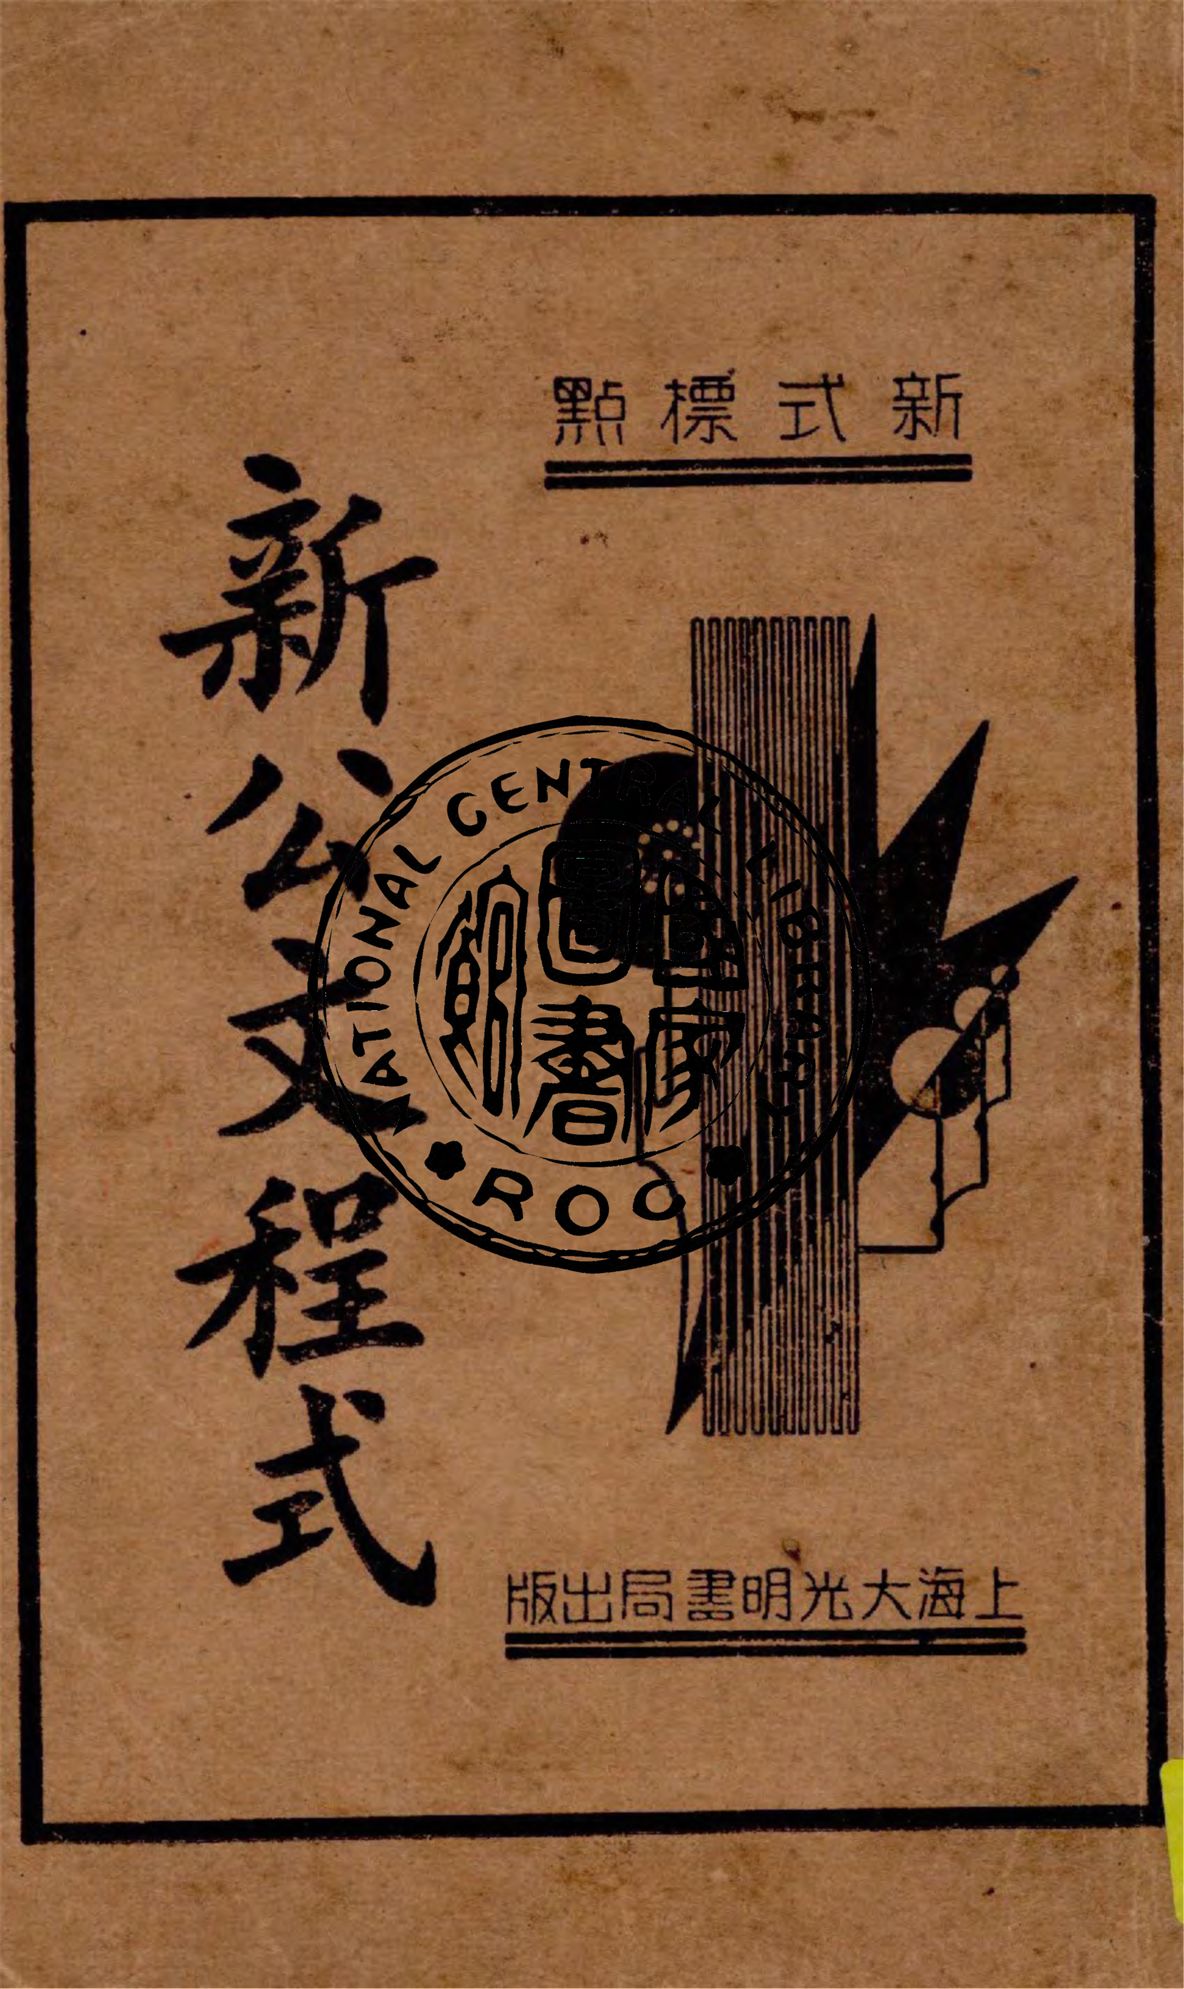 新式標點
新公文程式
上海大光明書局出版
NATIONAL CENTRAL LIBRARY
國家圖書館
ROC